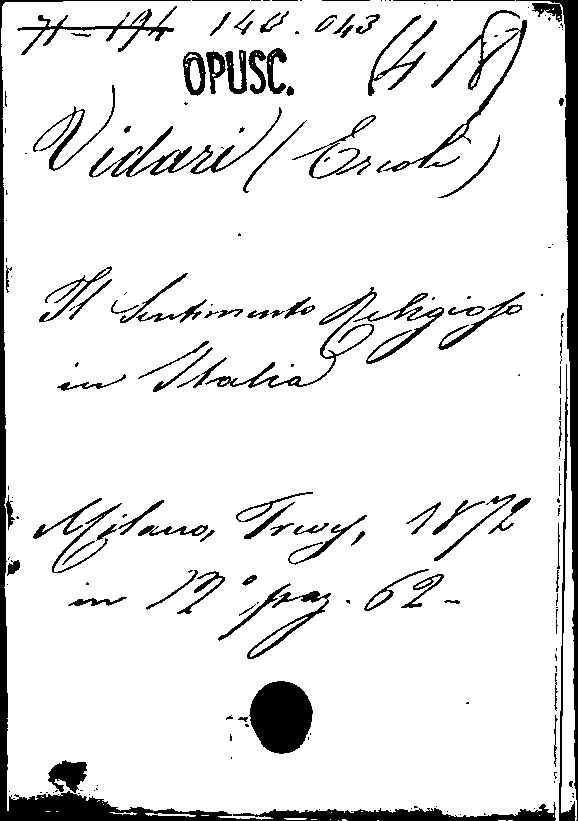 71-194 140.043 (418)
OPUSC.
Vidari (Ercole)
Il Sentimento Religioso
in Italia
Milano, Treves, 1872
in 12° pag. 62-